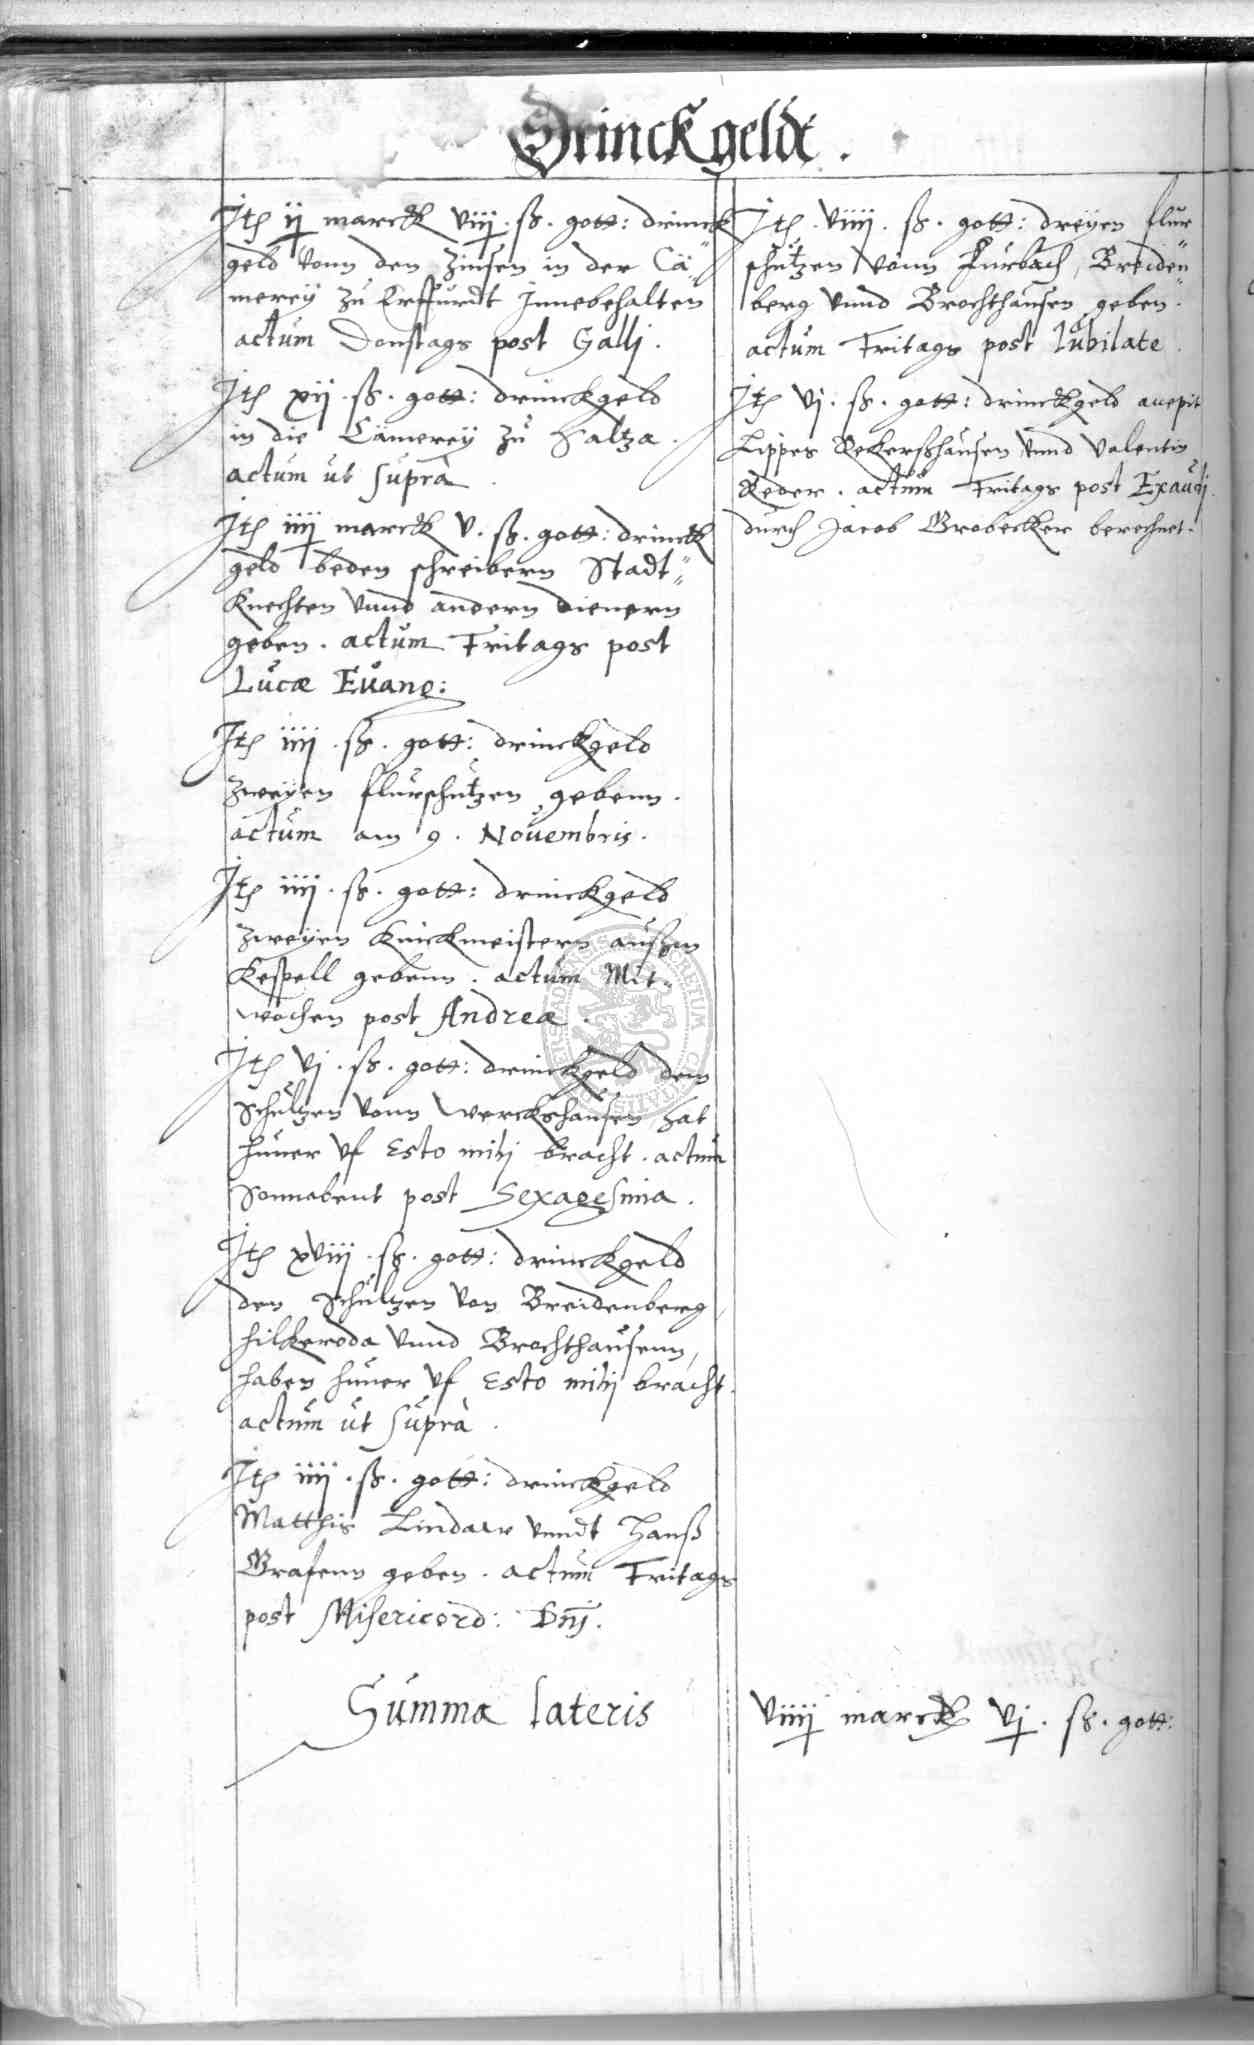 Drinckgeldt.
Jtem ij marck viij. ß. gott: drinck
geld vonn den Zinsen in der Cä"
merey zu Erffurdt Jnnebehalten
actum Donstags post Galli.
Jtem xij. ß. gott: drinckgeld
in die Cämerey zu Saltza.
actum ut suprà.
Jtem iiij marck v. ß. gott: drinck
geld beden schreibern Stadt"
Knechten vnnd andern dienern
geben. actum Fritags post
Lucæ Euang:
Jtem iiij. ß. gott: drinckgeld
zweyen flurschutzen gebenn.
actum am 9. Nouembris.
Jtem iiij. ß. gott: drinckgeld
zweyen Knickmeistern außem
Kespell gebenn. actum Mit"
wochen post Andreæ.
Jtem vj. ß. gott: drinckgeld dem
Schultzen vonn Werckshausen hat
huner vf Esto mihj bracht. actum
Sonnabent post Sexagesima.
Jtem xviij. ß. gott: drinckgeld
den Schultzen von Breidenberg,
hilkeroda vnnd Brochthausenn,
haben huner vf Esto mihj bracht.
actum ut suprà.
Jtem iiij. ß. gott: drinckgeld
Matthis Lindaw vnndt Hanß
Grafenn geben. actum Fritags
post Misericord: Dnj.
Summa lateris
Jtem. viiij. ß. gott: dreyen flur
schutzen vonn Furbach, Breiden"
berg vnnd Brochthausen geben.
actum Fritags post Jubilate.
Jtem vj. ß. gott: drinckgeld
Lippes Rekerßhausen vnnd Valentin
Reder. actum Fritags post Exaudj.
durch Jacob Brobecker berechnet.
viiij marck vj. ß. gott: